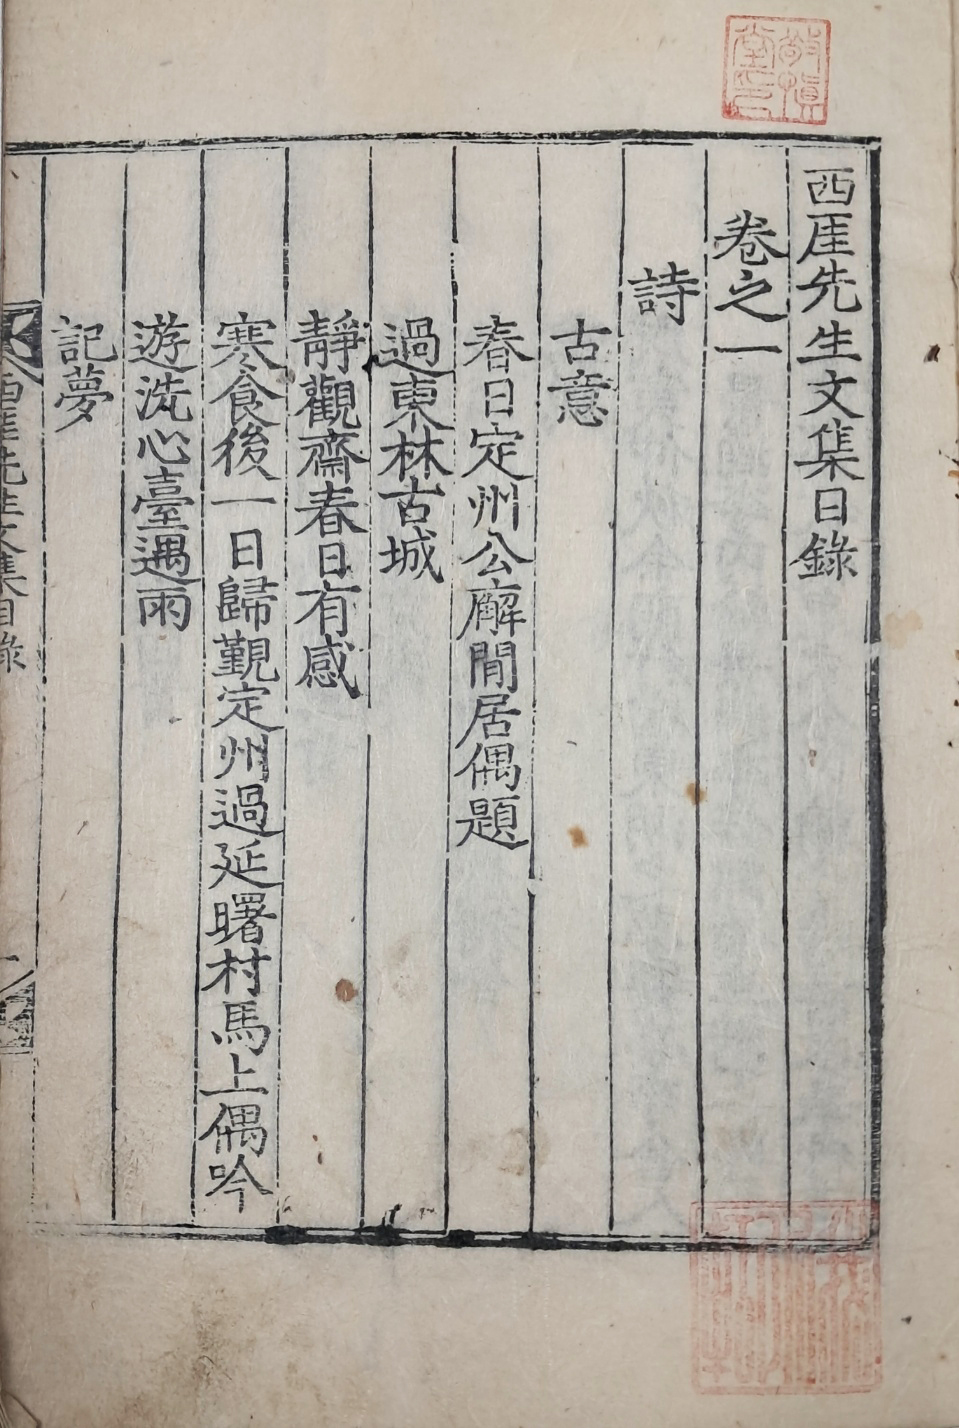 西厓先生文集目錄
卷之一
詩
古意
春日定州公廨閒居偶題
過東林古城
靜觀齋春日有感
寒食後一日歸覲定州過延曙村馬上偶吟
遊洗心臺遇雨
記夢
西厓先生文集目錄
敬慎堂印